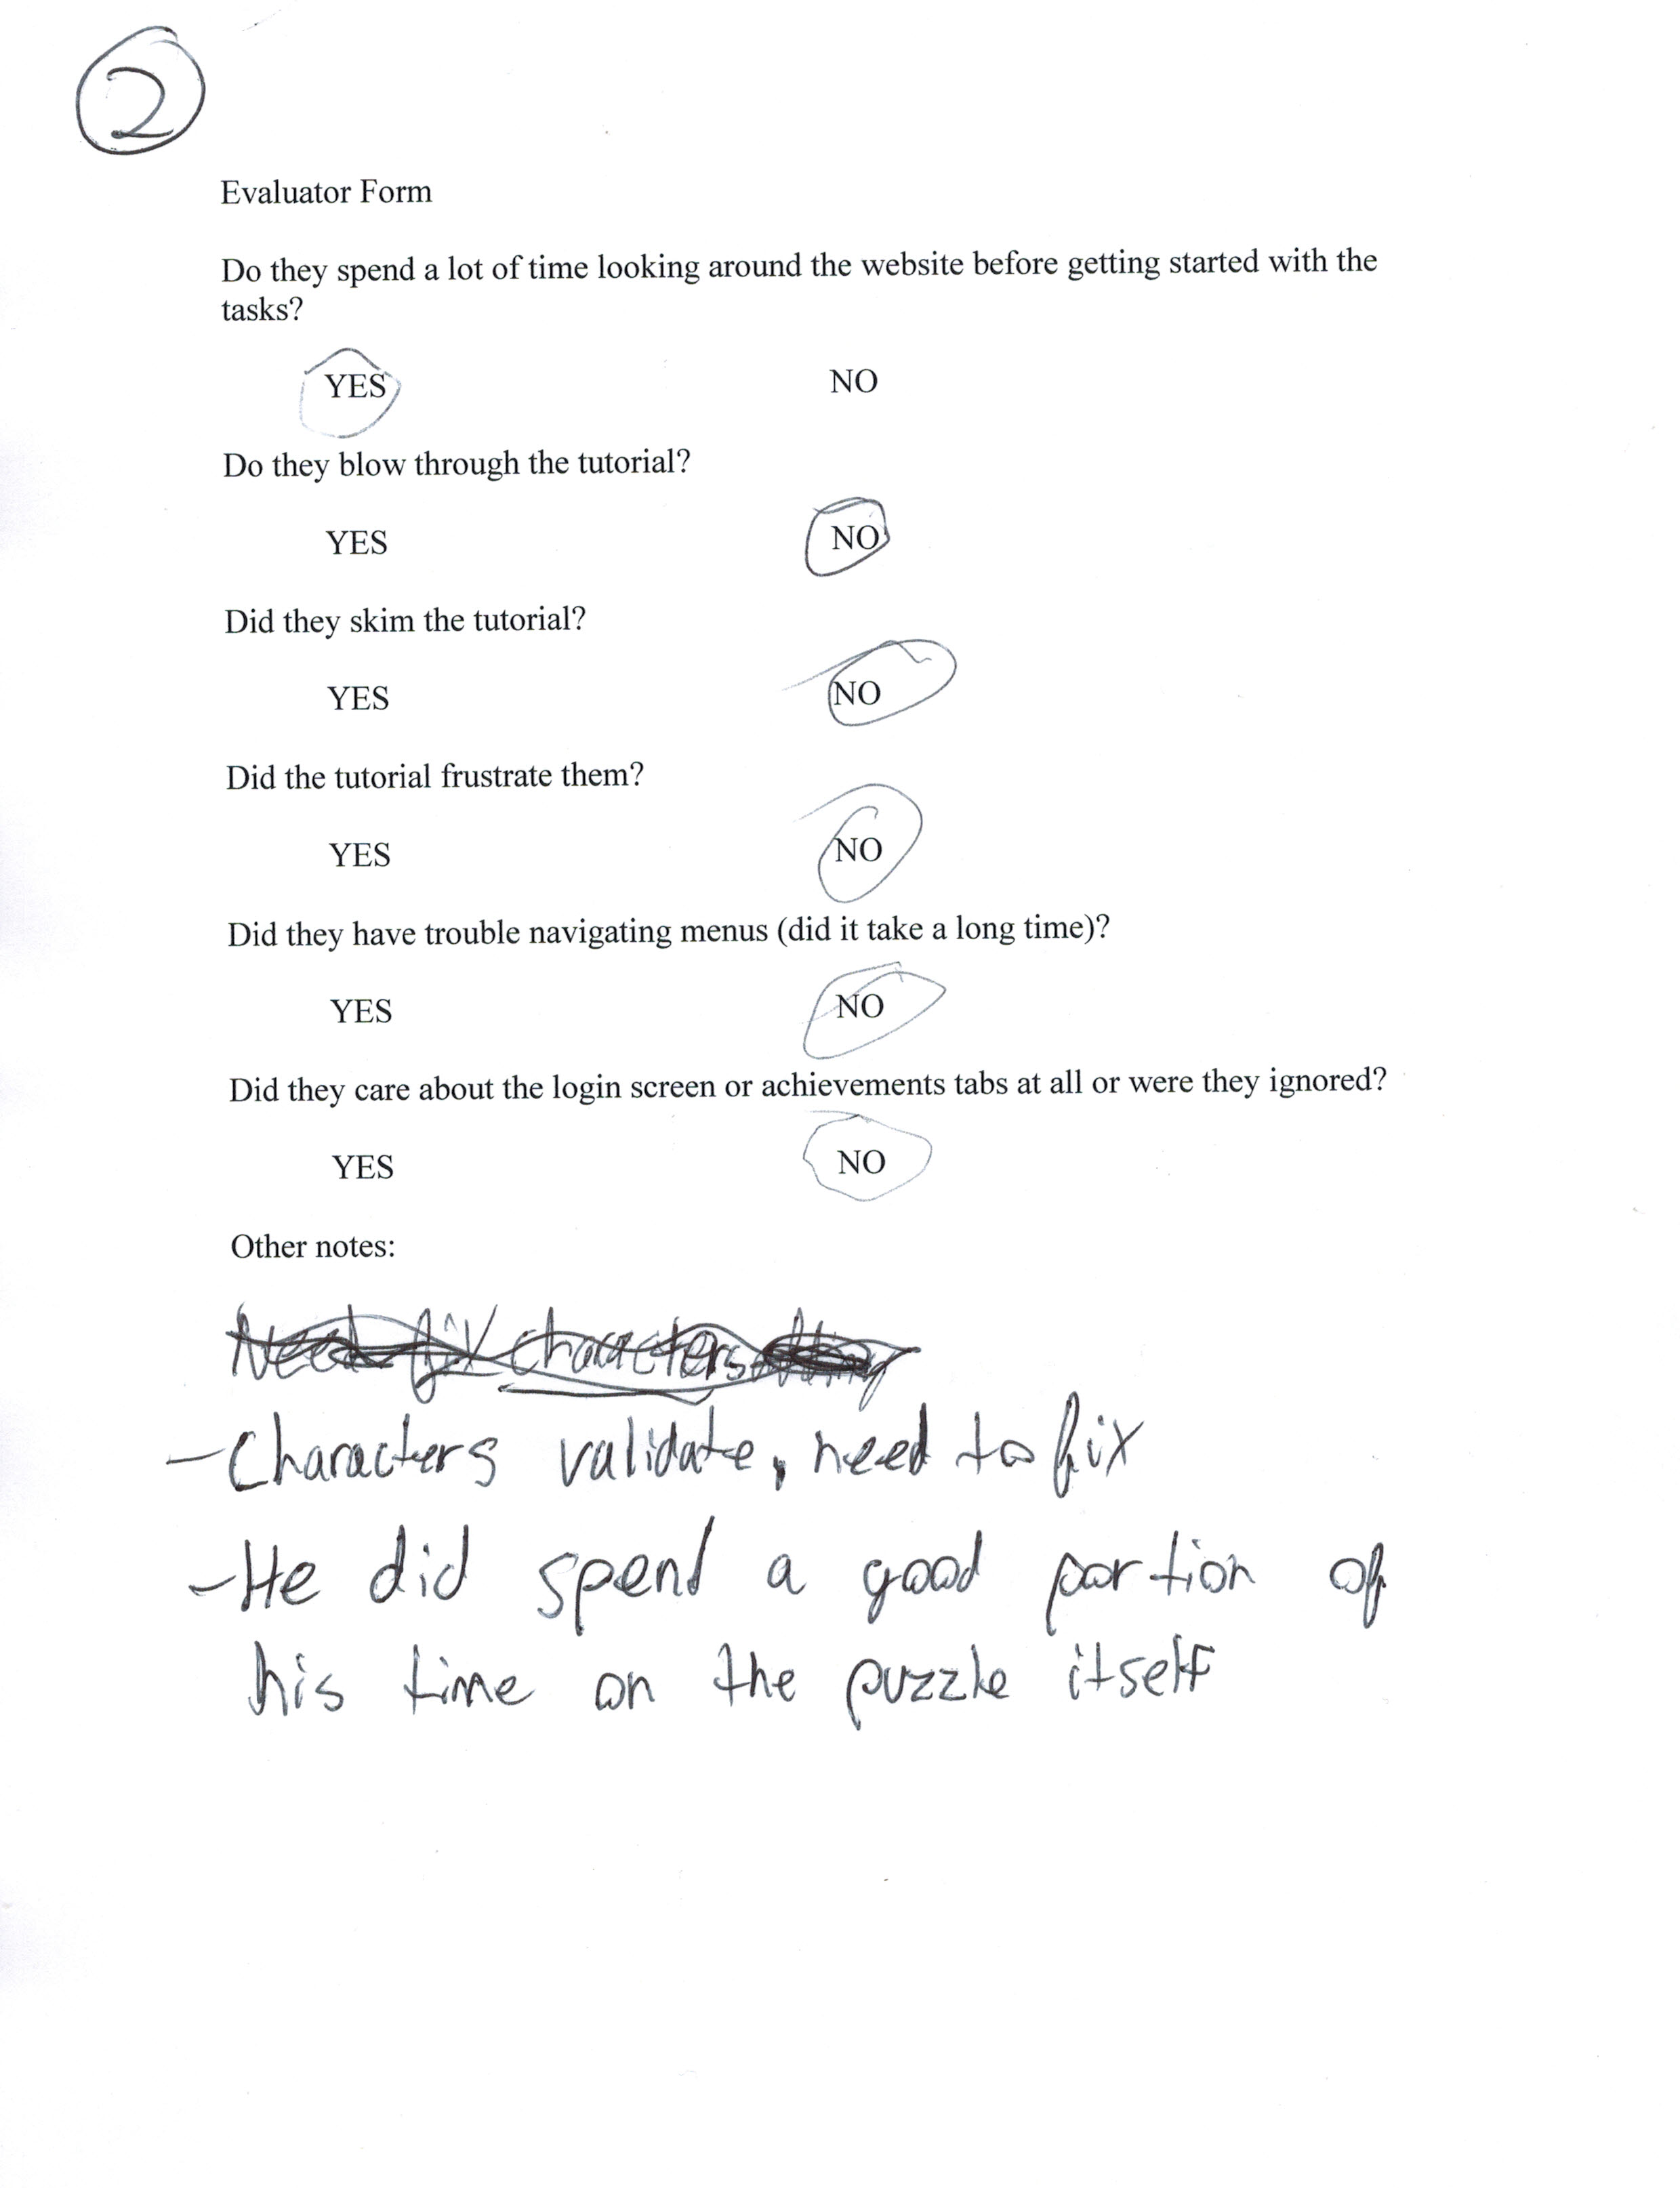 2
Evaluator Form
Do they spend a lot of time looking around the website before getting started with the
tasks?
YES NO
Do they blow through the tutorial?
YES NO
Did they skim the tutorial?
YES NO
Did the tutorial frustrate them?
YES NO
Did they have trouble navigating menus (did it take a long time)?
YES NO
Did they care about the login screen or achievements tabs at all or were they ignored?
YES NO
Other notes:
Need fix characters
- Characters validate, need to fix
- He did spend a good portion of
his time on the puzzle itself